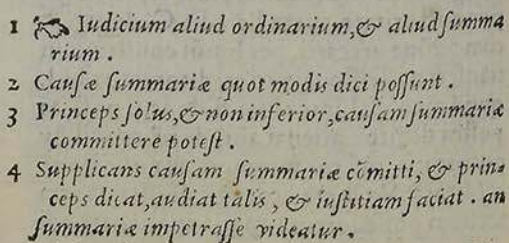 1 Iudicium aliud ordinarium,& aliud ſumma
rium.
2 Cauſæ ſummariæ quot modis dici poſſunt.
3 Princeps ſolus,& non inferior,cauſam ſummariæ
committere poteſt.
4 Supplicans cauſam ſummariæ cōmitti, & prin=
ceps dicat,audiat talis, & iuſtitiam faciat. an
ſummariæ impetraſſe videatur.